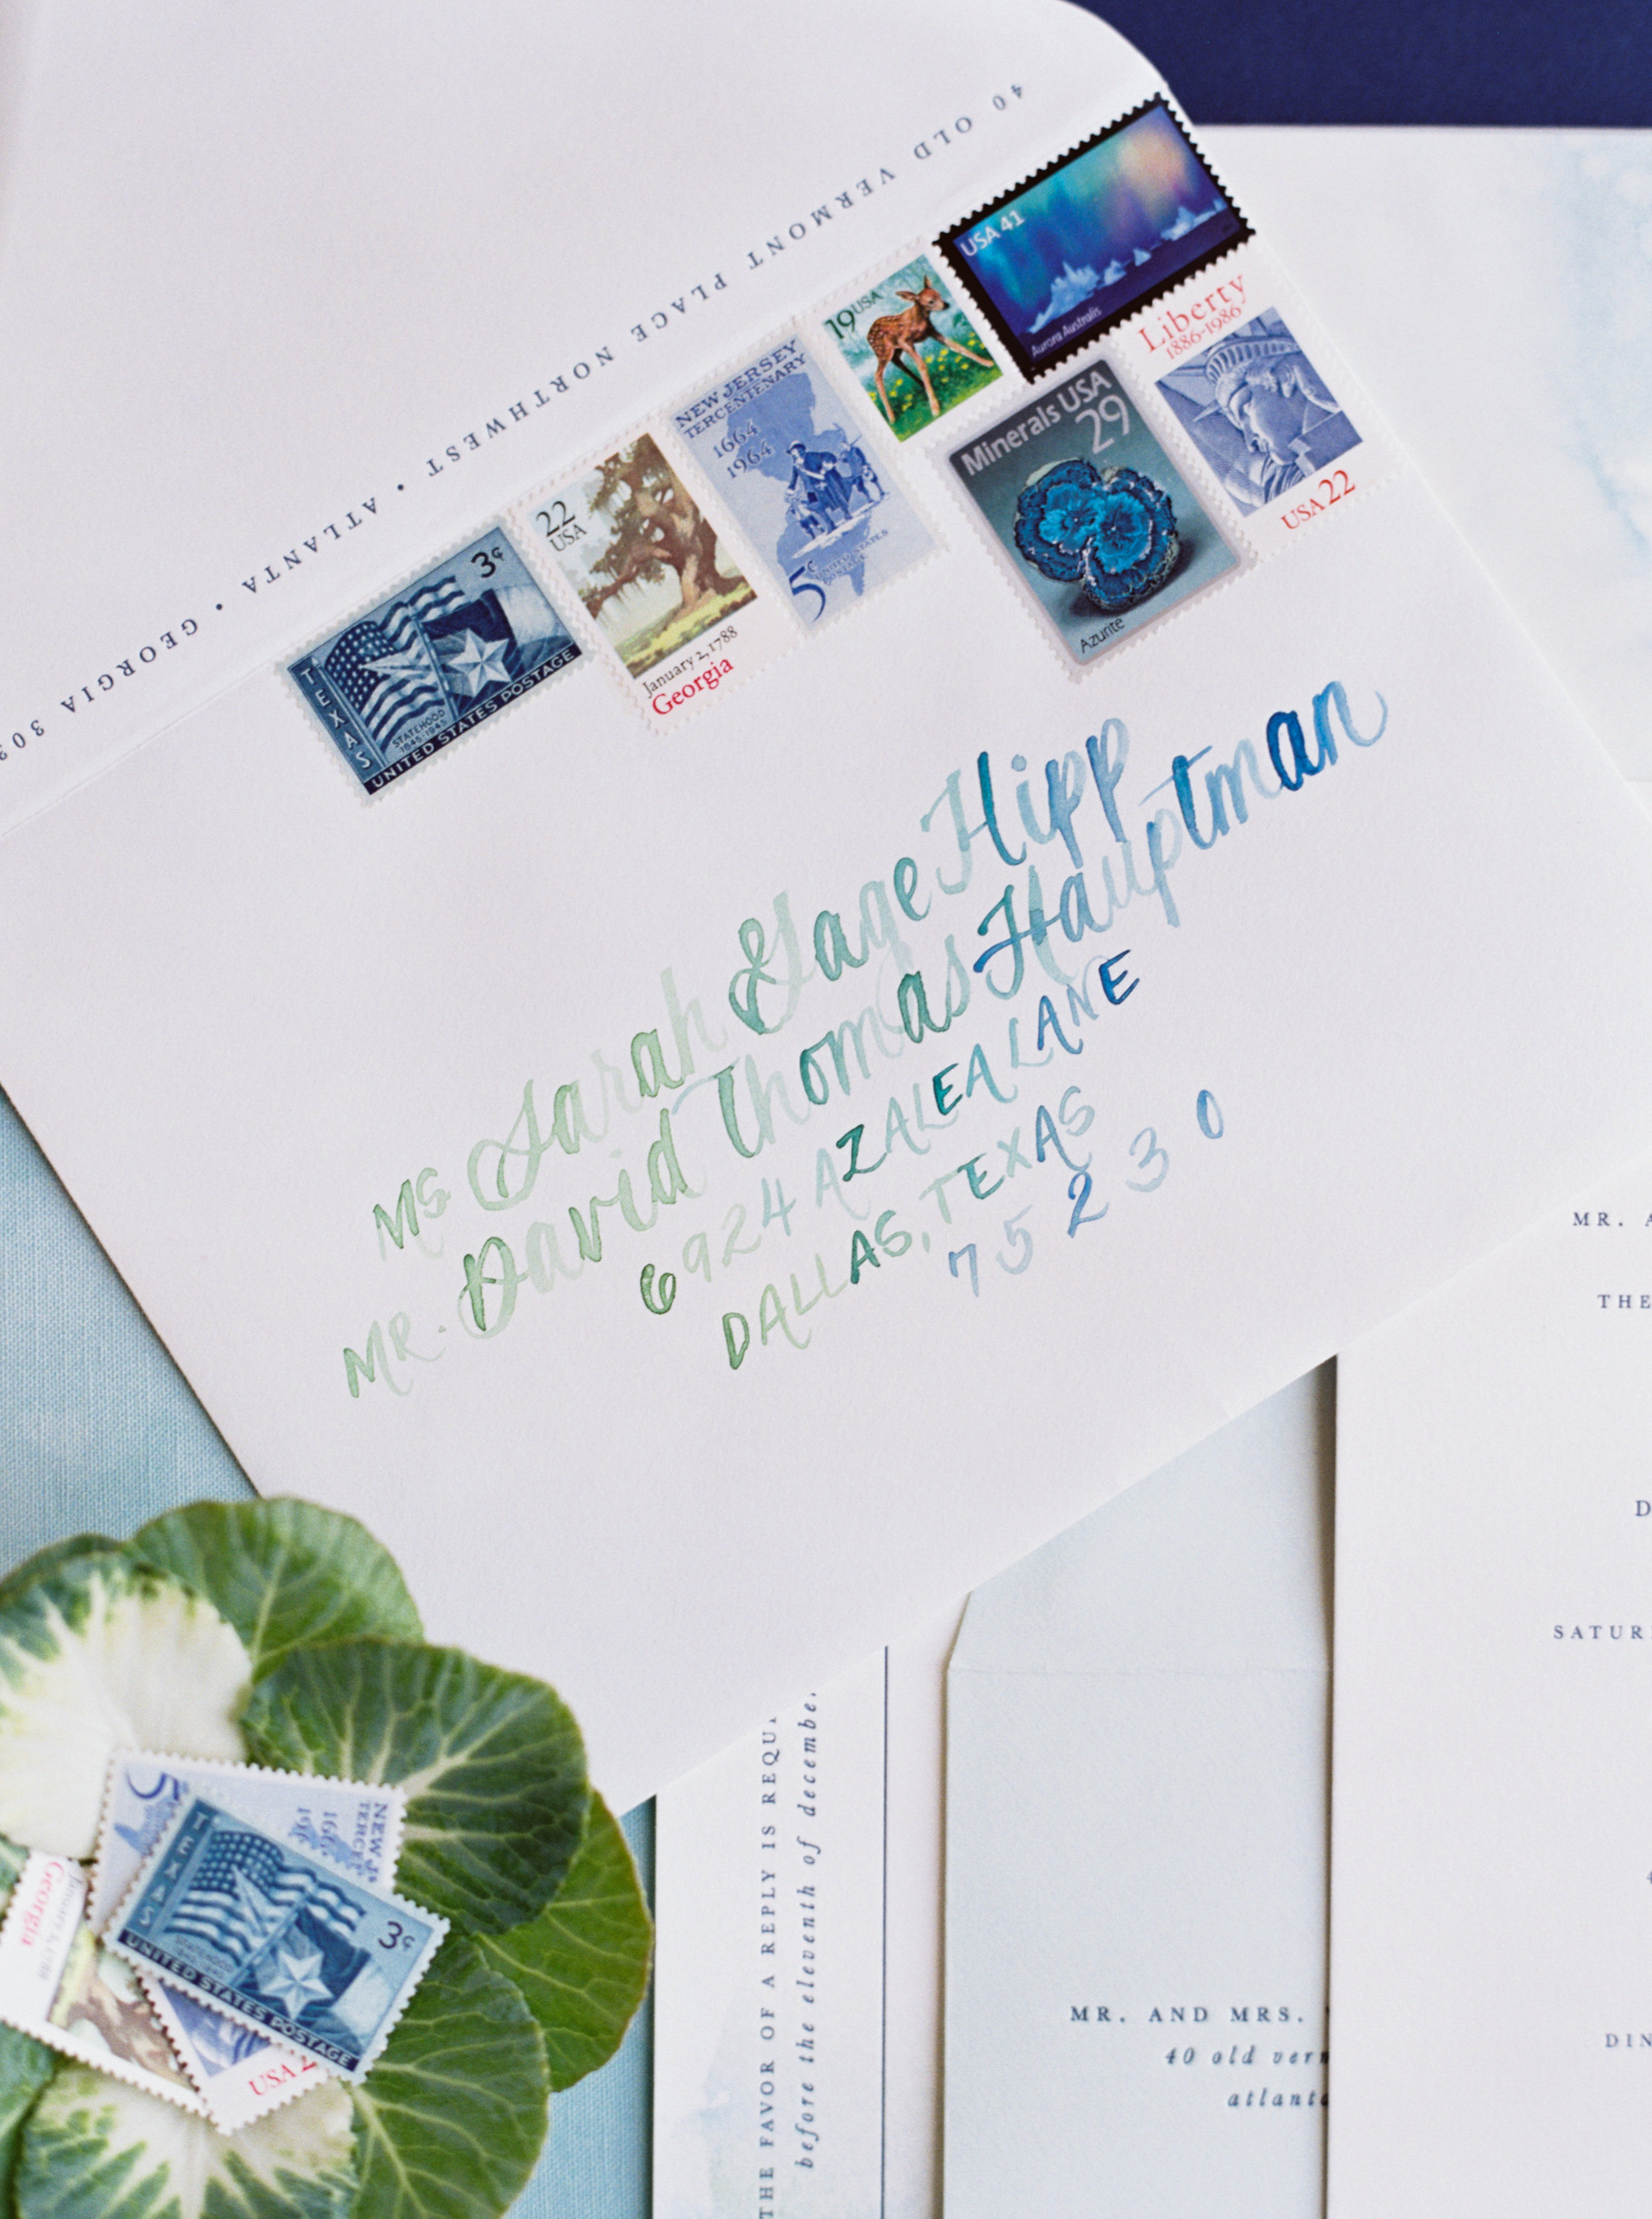 40 OLD VERMONT PLACE NORTHWEST • ATLANTA • GEORGIA
USA 41
Aurora Australis
19USA
Liberty
1886-1986
USA 22
Minerals USA
29
Azurite
NEW JERSEY
TERCENTENARY
1664
1964
5¢
UNITED STATES
POSTAGE
22
USA
January 2, 1788
Georgia
3¢
TEXAS
STATEHOOD
1845·1945
UNITED STATES POSTAGE
Ms Sarah Gage Hipp
MR. David Thomas Hauptman
6924 AZALEA LANE
DALLAS, TEXAS
75230
MR.
THE
MR. AND MRS.
40 old
THE FAVOR OF A REPLY IS
before the eleventh of
5
3¢
TEXAS
UNITED STATES POSTAGE
January 2, 1788
Georgia
USA